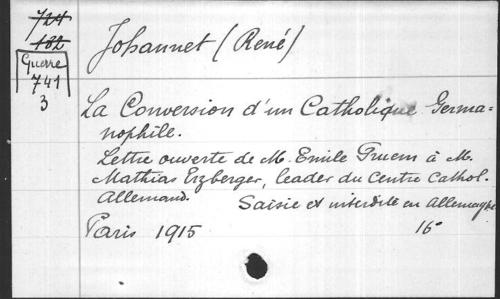 724
182
Guerre
741
3
Johannet (René)
La Conversion d'un Catholique Germa=
nophile.
Lettre ouverte de M. Emile Pruem à M.
Mathias Erzberger, leader du Centre Cathol.
Allemand. Saisie et interdite en Allemagne
Paris 1915 16°